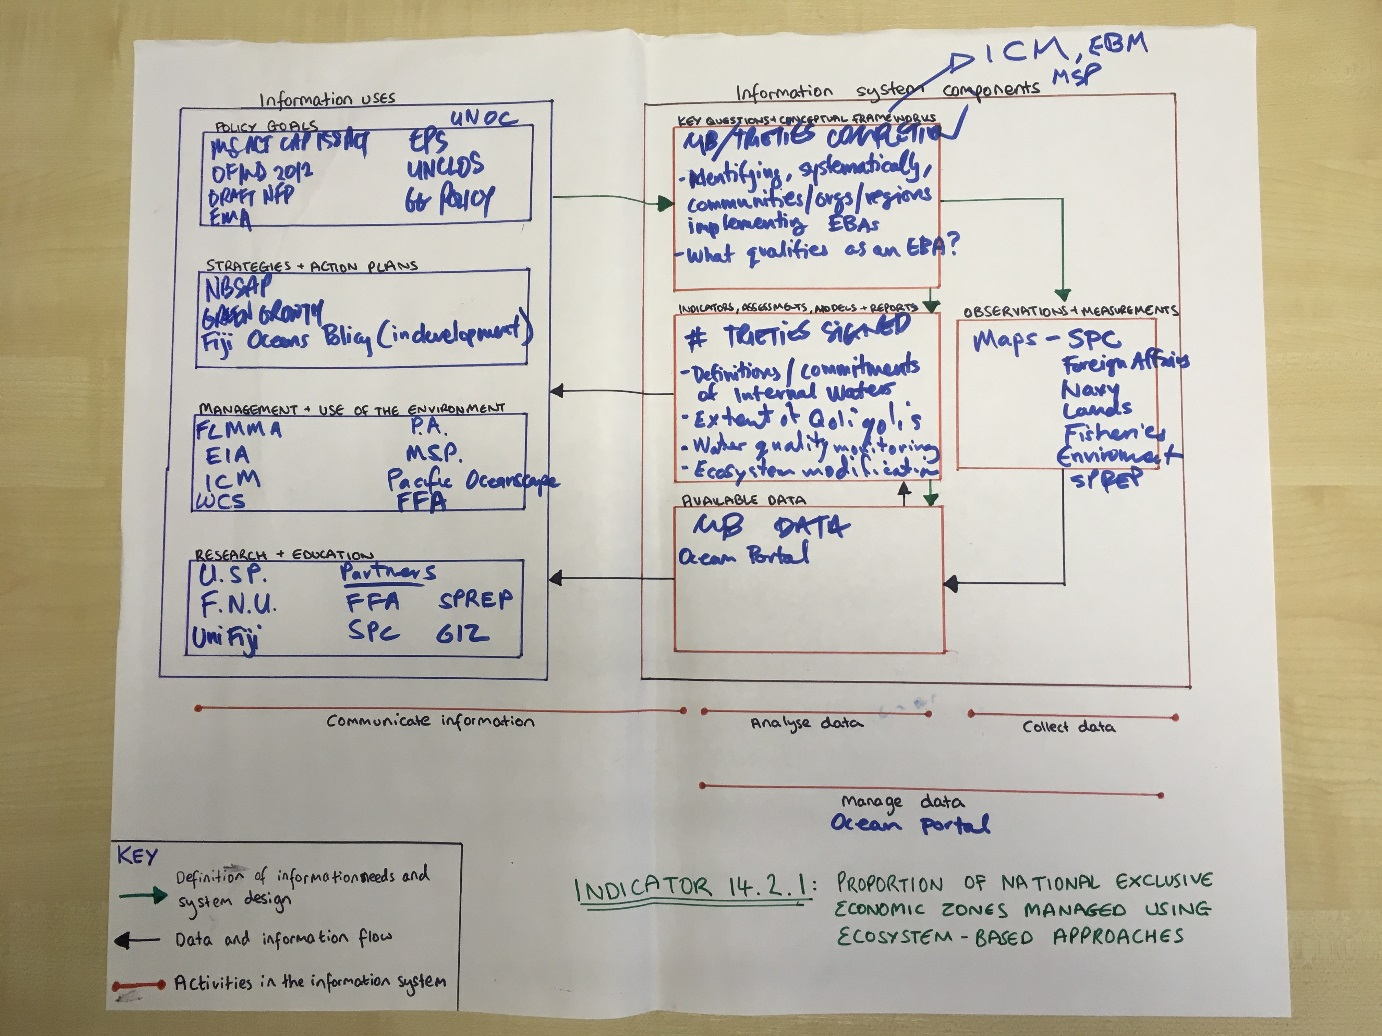 ICM, EBM
MSP
Information uses
Information system components
POLICY GOALS
UNOC
OFMD 2012
DRAFT NFP
EMA
EPS
UNCLOS
GG POLICY
STRATEGIES + ACTION PLANS
NBSAP
GREEN GROWTH
Fiji Oceans Policy (in development)
MANAGEMENT + USE OF THE ENVIRONMENT
FLMMA
EIA
ICM
WCS
P.A.
M.S.P.
Pacific Oceanscape
FFA
RESEARCH + EDUCATION
U.S.P.
F.N.U.
Uni Fiji
Partners
FFA SPREP
SPC GIZ
KEY QUESTIONS + CONCEPTUAL FRAMEWORKS
MB/TRETIES COMPLETION
- Identifying, systematically,
communities/orgs/regions
implementing EBAs
- What qualifies as an EBA?
INDICATORS, ASSESSMENTS, MODELS + REPORTS
# TRIETIES SIGNED
- Definitions / commitments
of Internal Waters
- Extent of Qoliqolis
- Water quality monitoring
- Ecosystem modification
AVAILABLE DATA
MB DATA
Ocean Portal
OBSERVATIONS + MEASUREMENTS
Maps - SPC
Foreign Affairs
Navy
Lands
Fisheries
Enviroment
SPREP
Communicate information
Analyse data
Collect data
Manage data
Ocean portal
KEY
Definition of information needs and
system design
Data and information flow
Activities in the information system
INDICATOR 14.2.1: PROPORTION OF NATIONAL EXCLUSIVE
ECONOMIC ZONES MANAGED USING
ECOSYSTEM-BASED APPROACHES